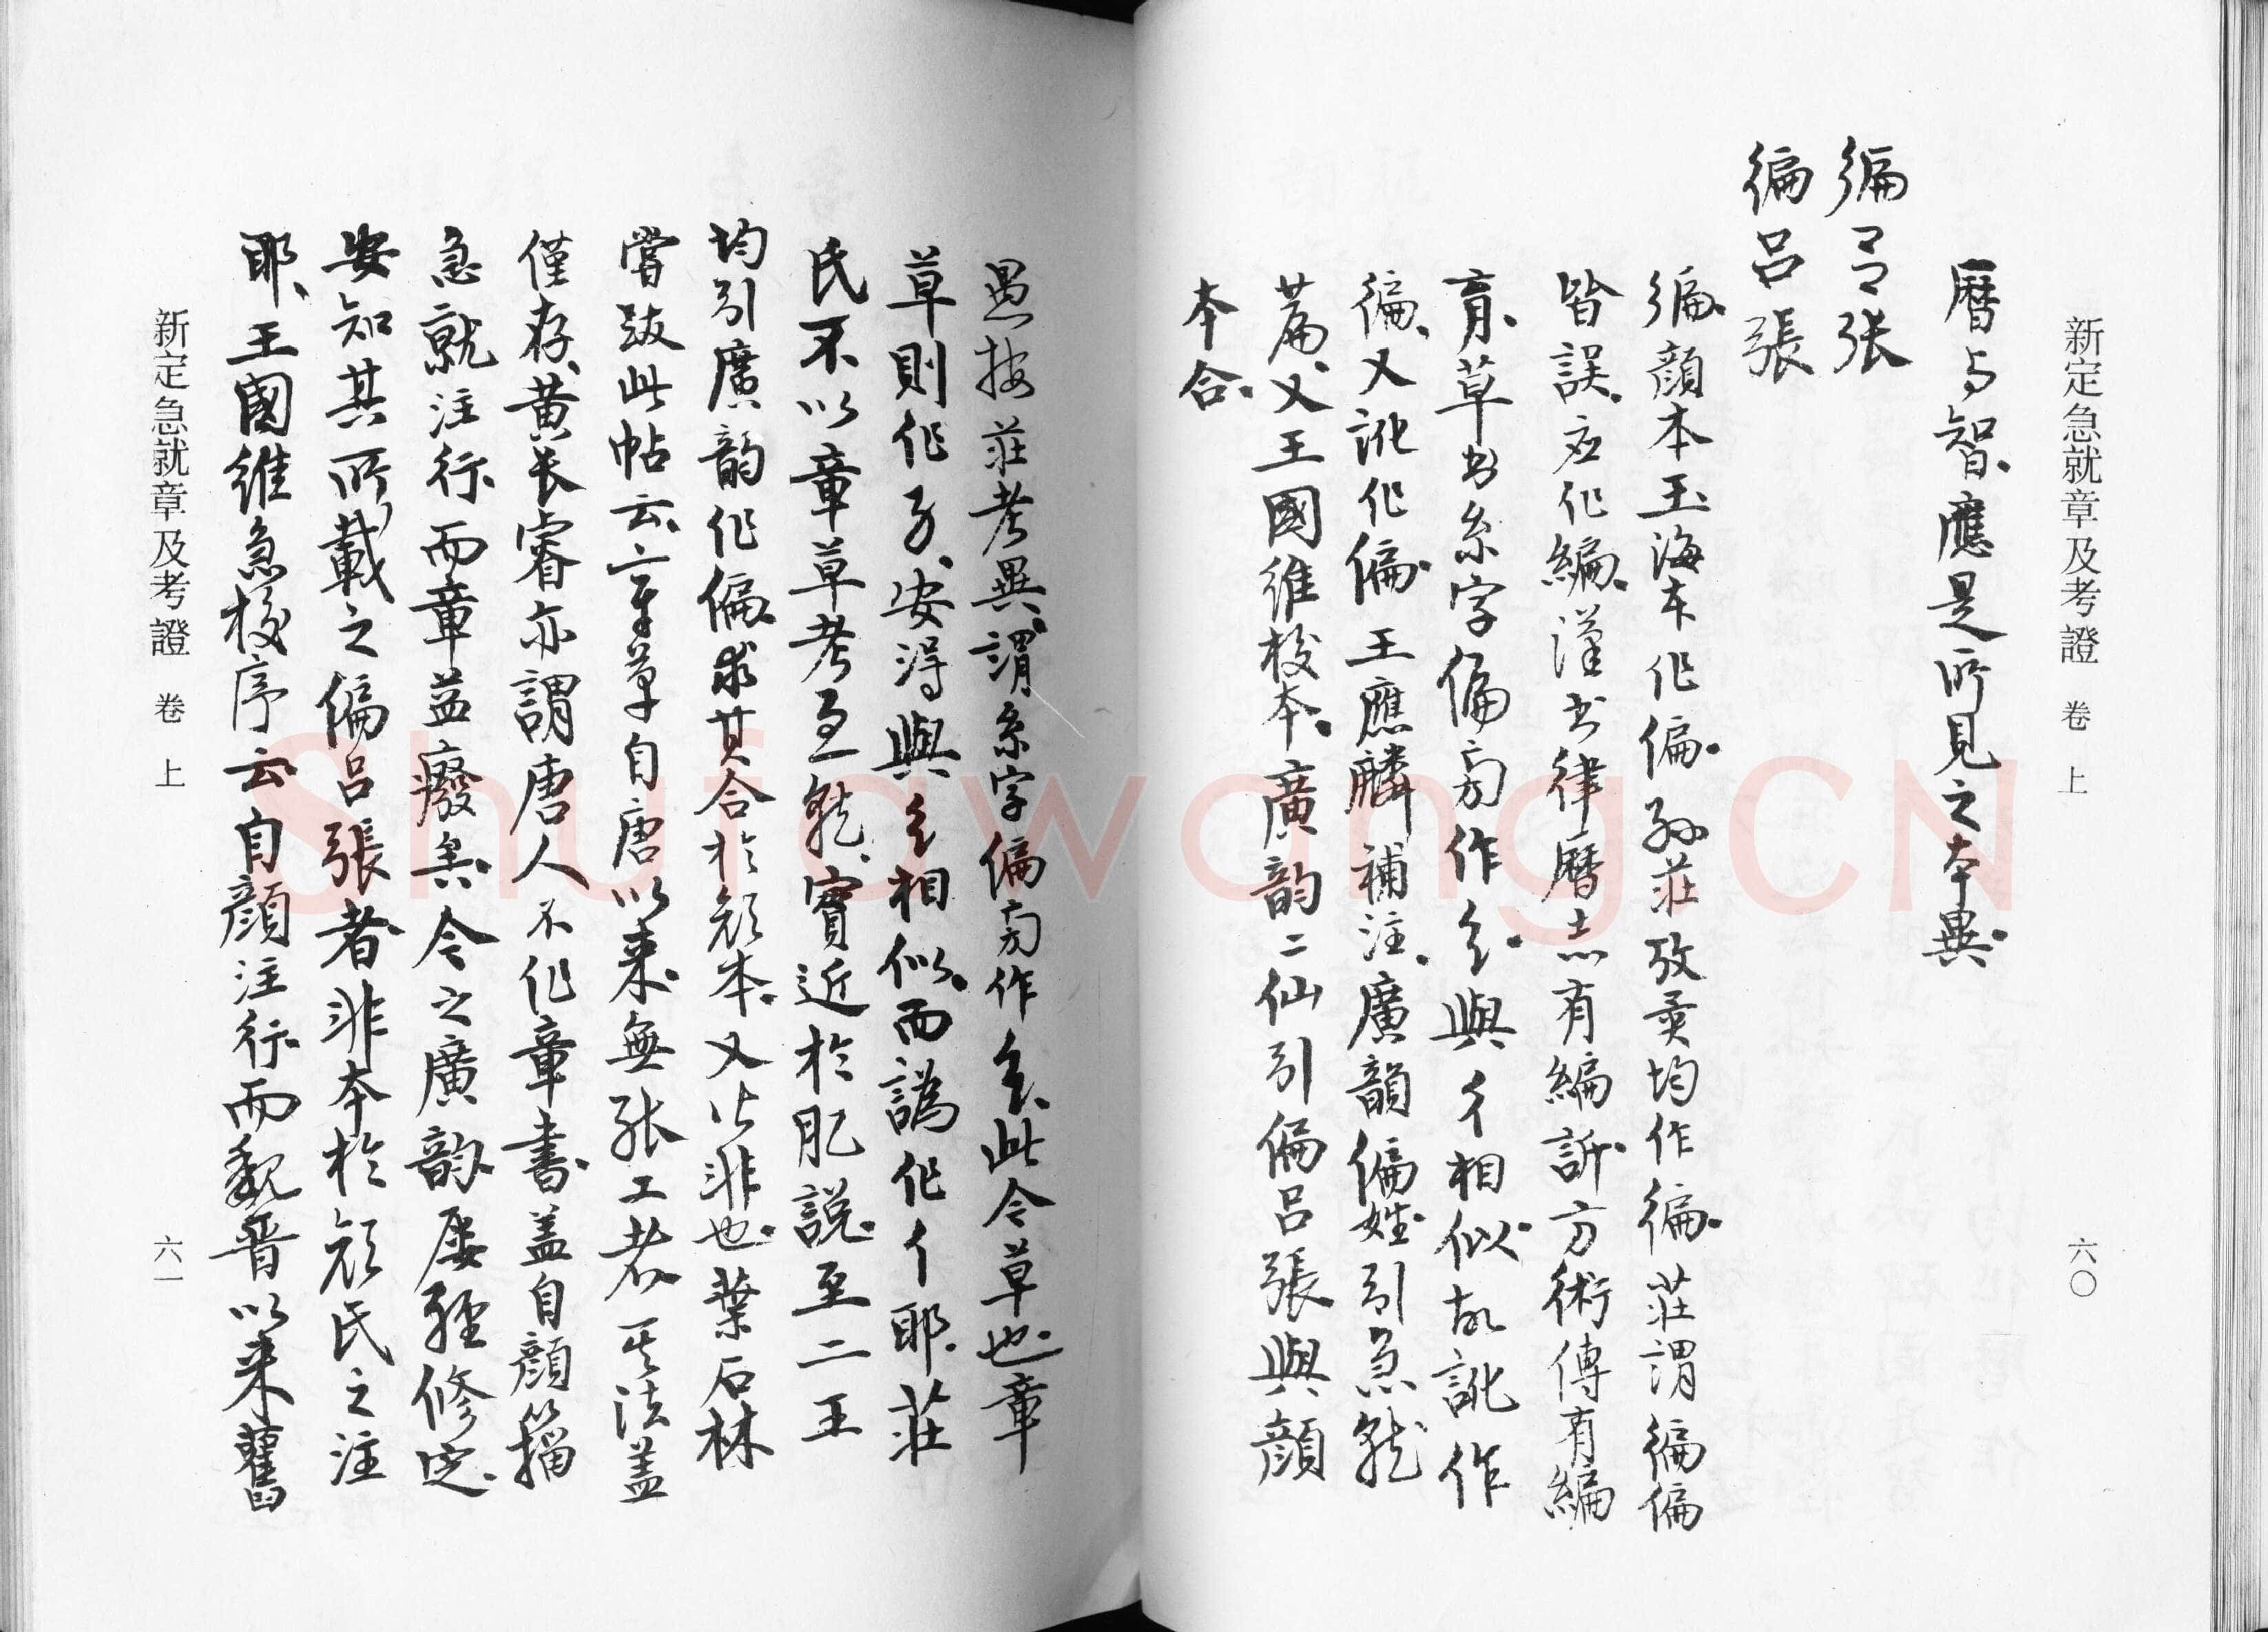 新定急就章及考證 卷上 六〇
曆与智應是所見之本異
徧吕张
徧吕張
徧顏本玉海本作偏孙莊攷異均作徧莊謂徧偏
皆誤应作編漢书律曆志有編訢方術傳有編
育草书糸字偏旁作纟與彳相似故訛作
徧又訛作偏王應麟補注廣韻偏姓引急就
篇又王國維校本廣韵二仙引偏吕張與顏
本合
愚按莊考異謂糸字偏旁作纟此今草也章
草則作子安得與纟相似而譌作彳耶莊
氏不以章草考急就實近於肊說至二王
均引廣韵作偏求其合於顏本又片非也葉石林
嘗跋此帖云章草自唐以来無张工者其法盖
僅存黄长睿亦謂唐人不作章書盖自顏籀
急就注行而章益癈矣今之廣韵屡經修定
安知其所載之偏吕張者非本於顏氏之注
耶王國維急校序云自顏注行而魏晋以来舊
新定急就章及考證 卷上 六一